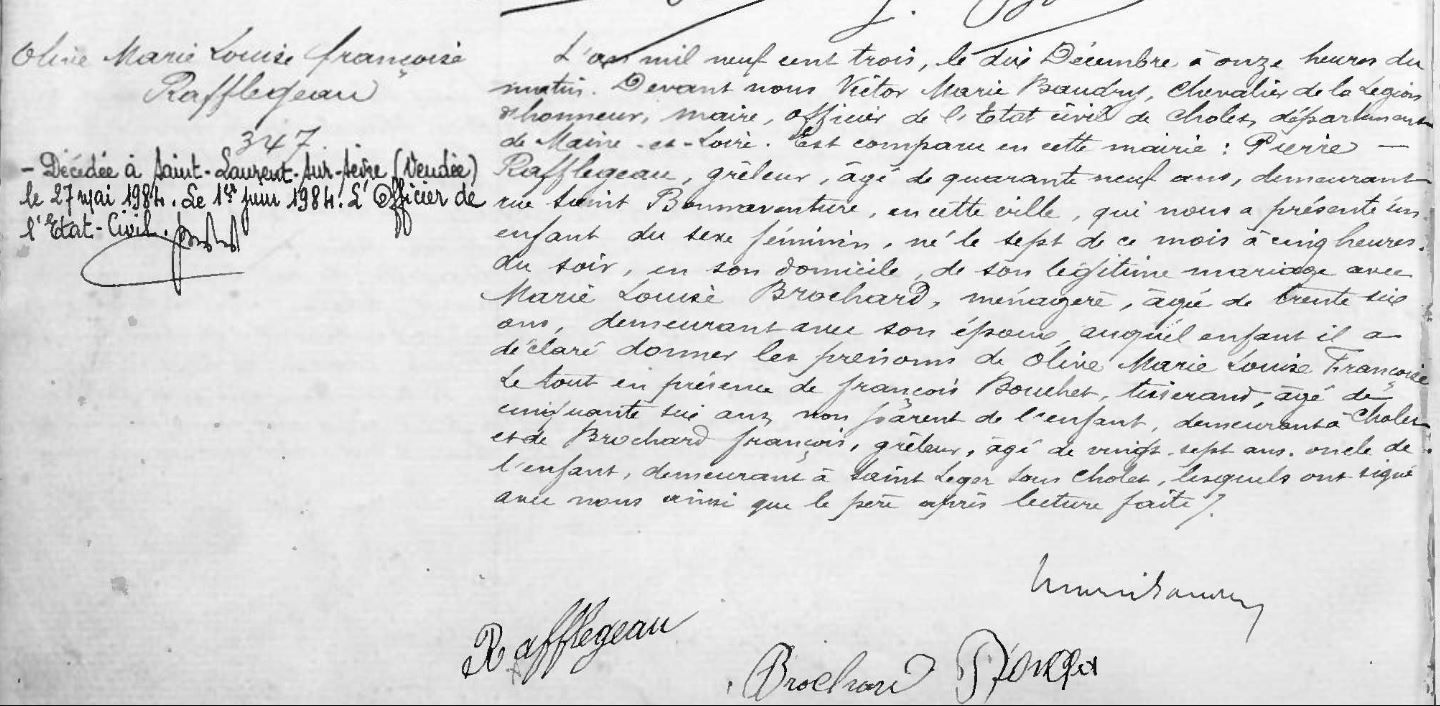 Olive Marie Louise françoise
Rafflegeau
347
- Décédée à Saint-Laurent-sur-Sèvre (Vendée)
le 27 mai 1984. Le 1er juin 1984. L'Officier de
l'Etat-Civil.
L'an mil neuf cent trois, le dix Décembre à onze heures du
matin. Devant nous Victor Marie Baudry, Chevalier de la Légion
d'honneur, maire, officier de l'Etat civil de Cholet, département
de Maine-et-Loire. Est comparu en cette mairie : Pierre —
Rafflegeau, grêleur, âgé de quarante neuf ans, demeurant
rue Saint Bonnaventure, en cette ville, qui nous a présenté un
enfant du sexe féminin, né le sept de ce mois à cinq heures.
du soir, en son domicile, de son légitime mariage avec
Marie Louise Brochard, ménagère, âgée de trente six
ans, demeurant avec son époux, auquel enfant il a
déclaré donner les prénoms de Olive Marie Louise Françoise
Le tout en présence de françois Bouchet, tisserand, âgé de
cinquante six ans, non parent de l'enfant, demeurant à Cholet
et de Brochard françois, grêleur, âgé de vingt-sept ans. oncle de
l'enfant, demeurant à Saint Leger sous Cholet, lesquels ont signé
avec nous ainsi que le père après lecture faite ./.
Rafflegeau
Brochard Bouchet